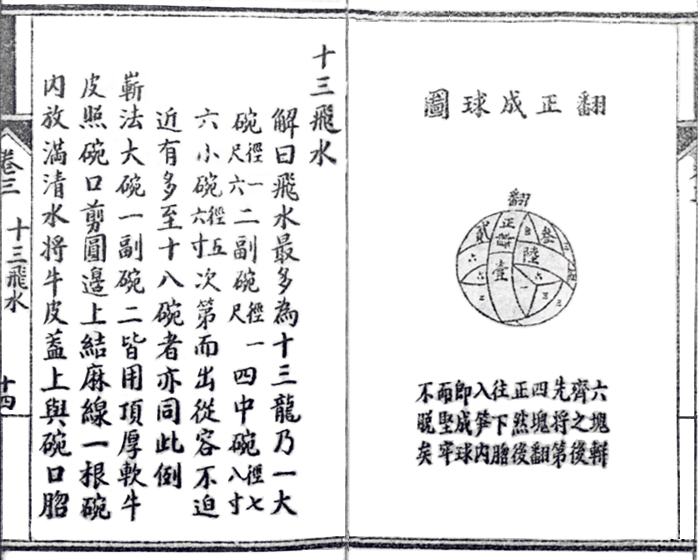 翻正成球圖
翻
正
叁
貳
陸
壹
六塊瓣
齊之後
先將第
四塊翻
正然後
往下脗
入笋內
即成球
而堅牢
不脫矣
十三飛水
解曰飛水最多為十三龍乃一大
碗徑一尺六二副碗徑一尺四中碗徑七八寸
六小碗徑五六寸次第而出從容不迫
近有多至十八碗者亦同此例
嶄法大碗一副碗二皆用頂厚軟牛
皮照碗口剪圓邊上結麻線一根碗
內放滿清水將牛皮蓋上與碗口脗
卷三 十三飛水 十四